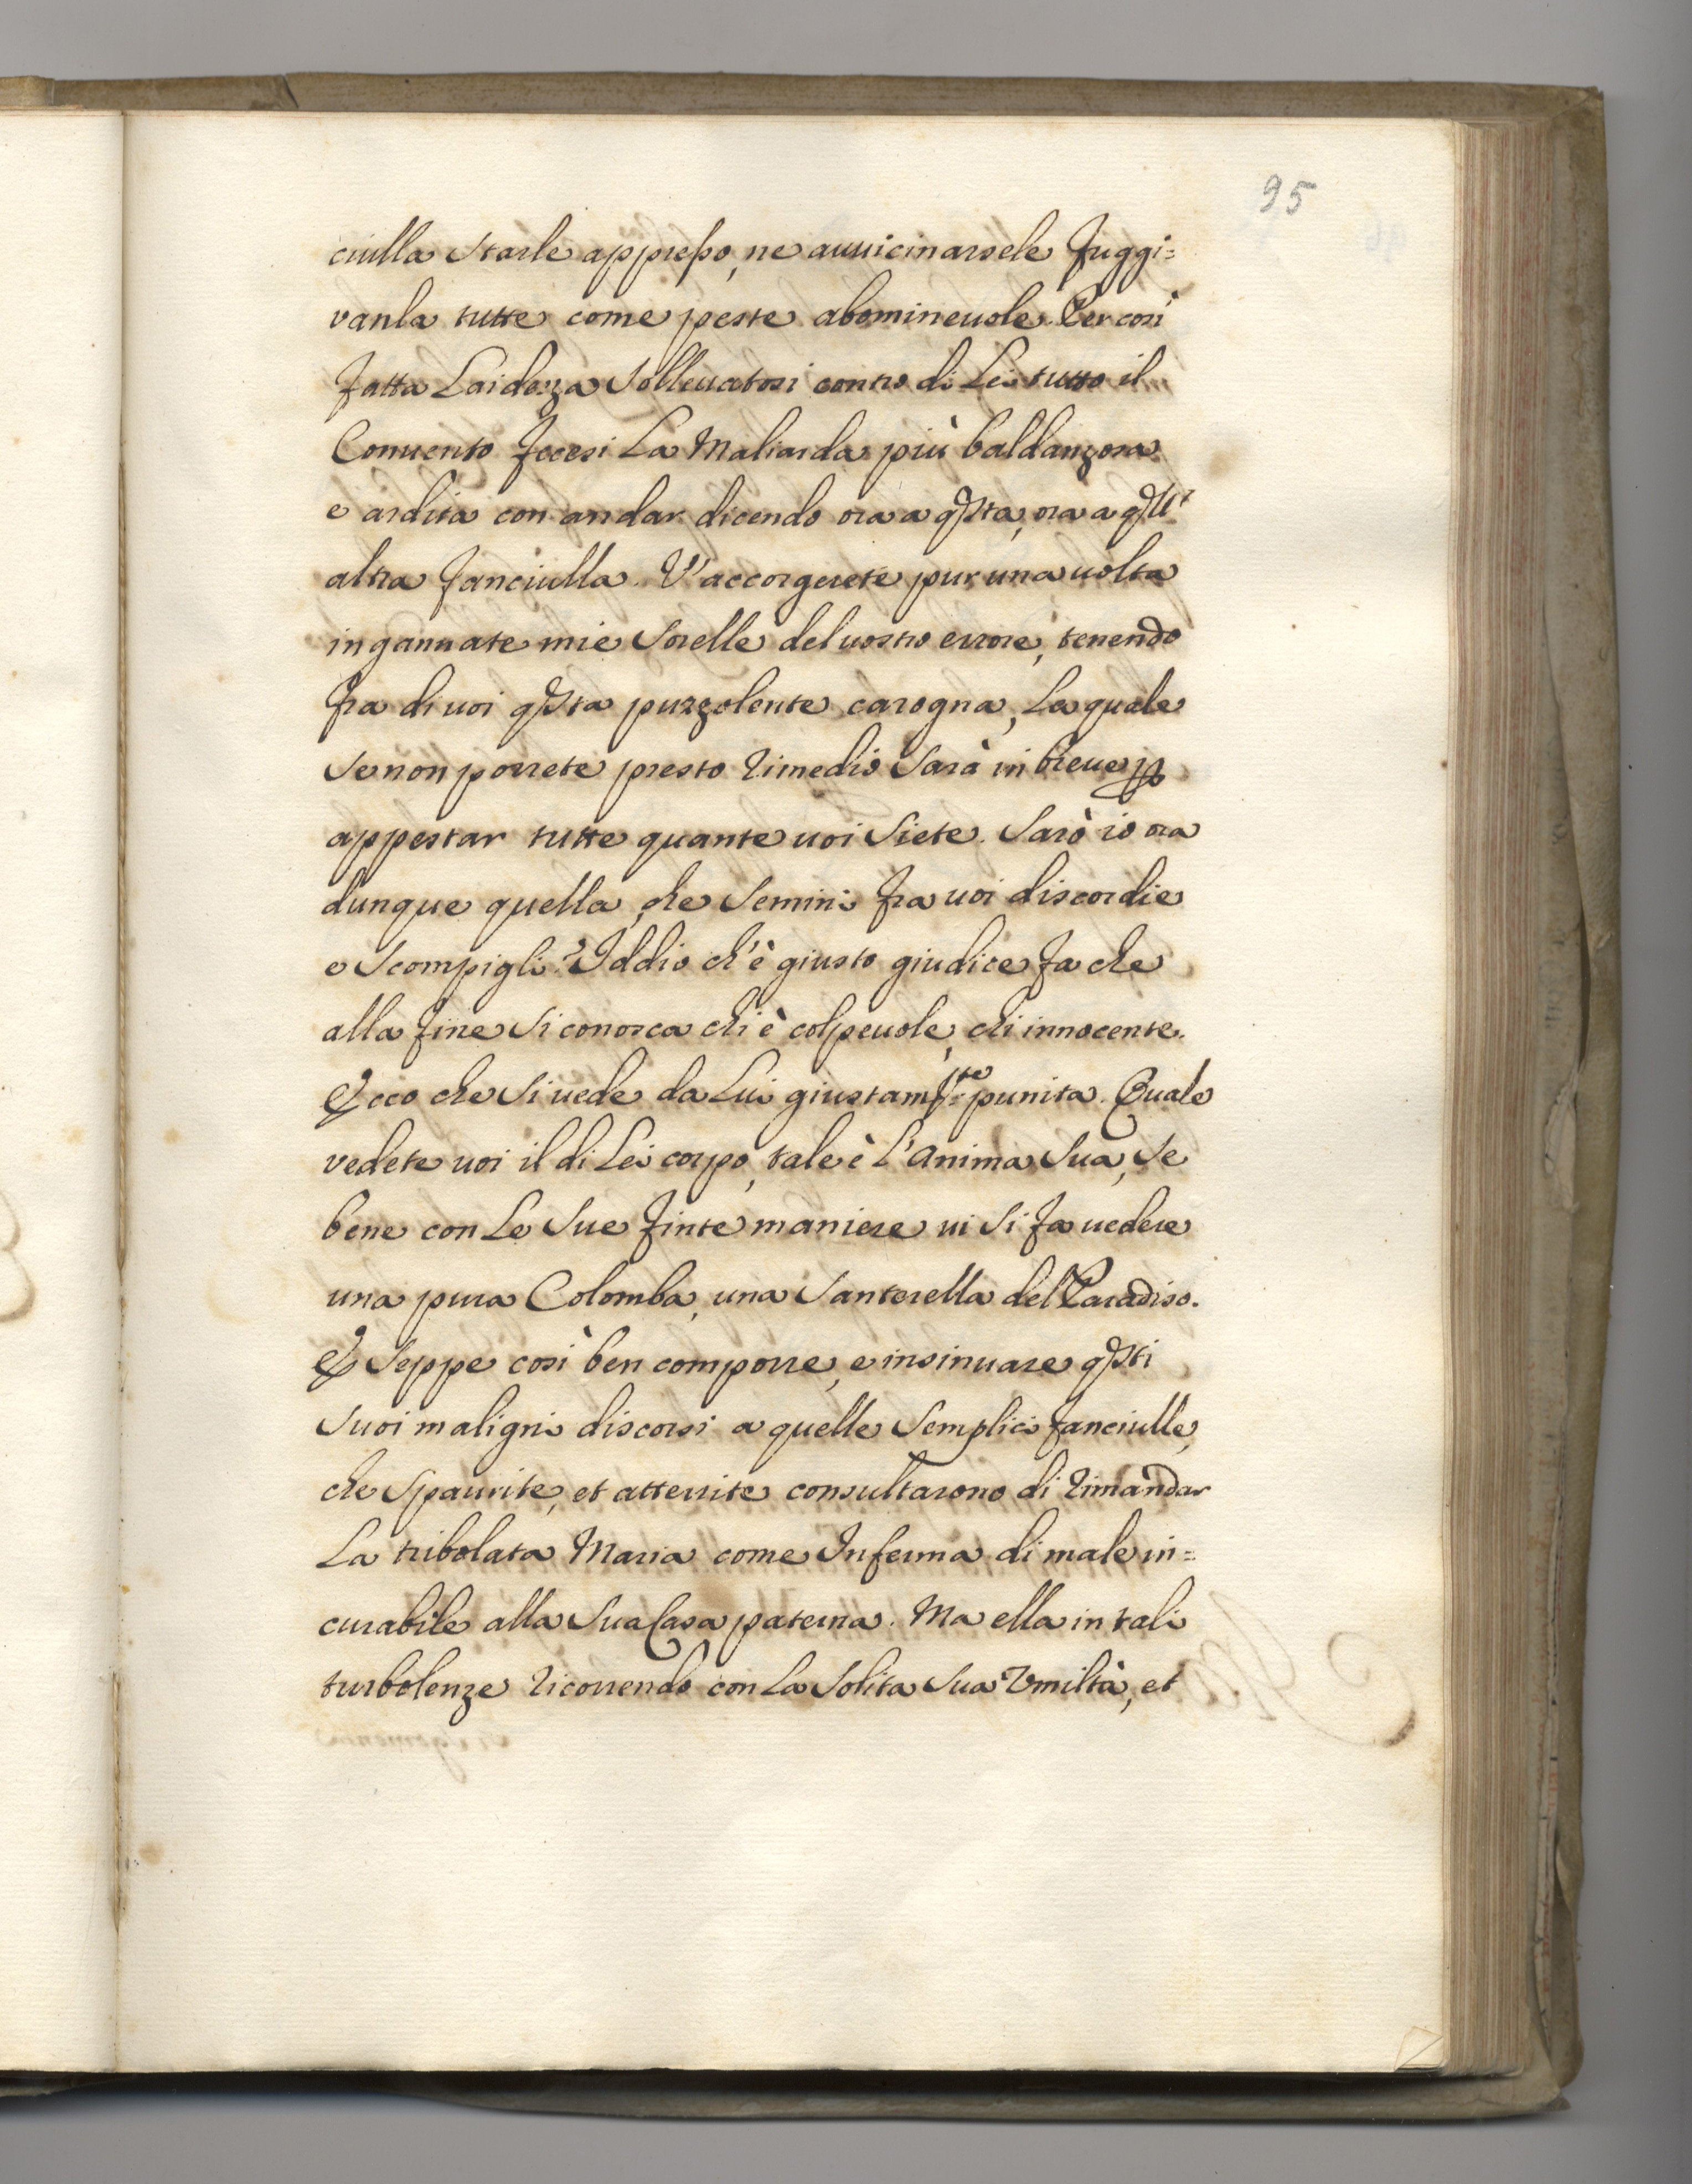 95
ciulla starle appresso, ne auuicinarsele fuggi=
vanla tutte come peste abomineuole. Per così
fatta Laidezza solleuatosi contro di Lei tutto il
Conuento fecesi La Maliarda più baldanzosa
e ardita con andar dicendo ora a qsta, ora a qll'
altra fanciulla. V'accorgerete pur una uolta
ingannate mie sorelle del uostro errore, tenendo
fra di uoi qsta puzzolente carogna, La quale
se non porrete presto rimedio sarà in breue p
appestar tutte quante uoi siete. Sarò io ora
dunque quella, che semini fra uoi discordie
e scompigli? Iddio ch'è giusto giudice fa che
alla fine si conosca chi è colpeuole, chi innocente.
Ecco che si uede da Lui giustamte punita. Quale
vedete uoi il di Lei corpo, tale è L'anima sua, se
bene con Le sue finte maniere ui si fa uedere
una pura Colomba, una santerella del Paradiso.
E seppe così ben comporre, e insinuare qsti
suoi maligni discorsi a quelle semplici fanciulle,
che spaurite, et atterrite consultarono di rimandar
La tribolata Maria come Inferma di male in=
curabile alla sua Casa paterna. Ma ella in tali
turbolenze ricorrendo con La solita sua Vmiltà, et